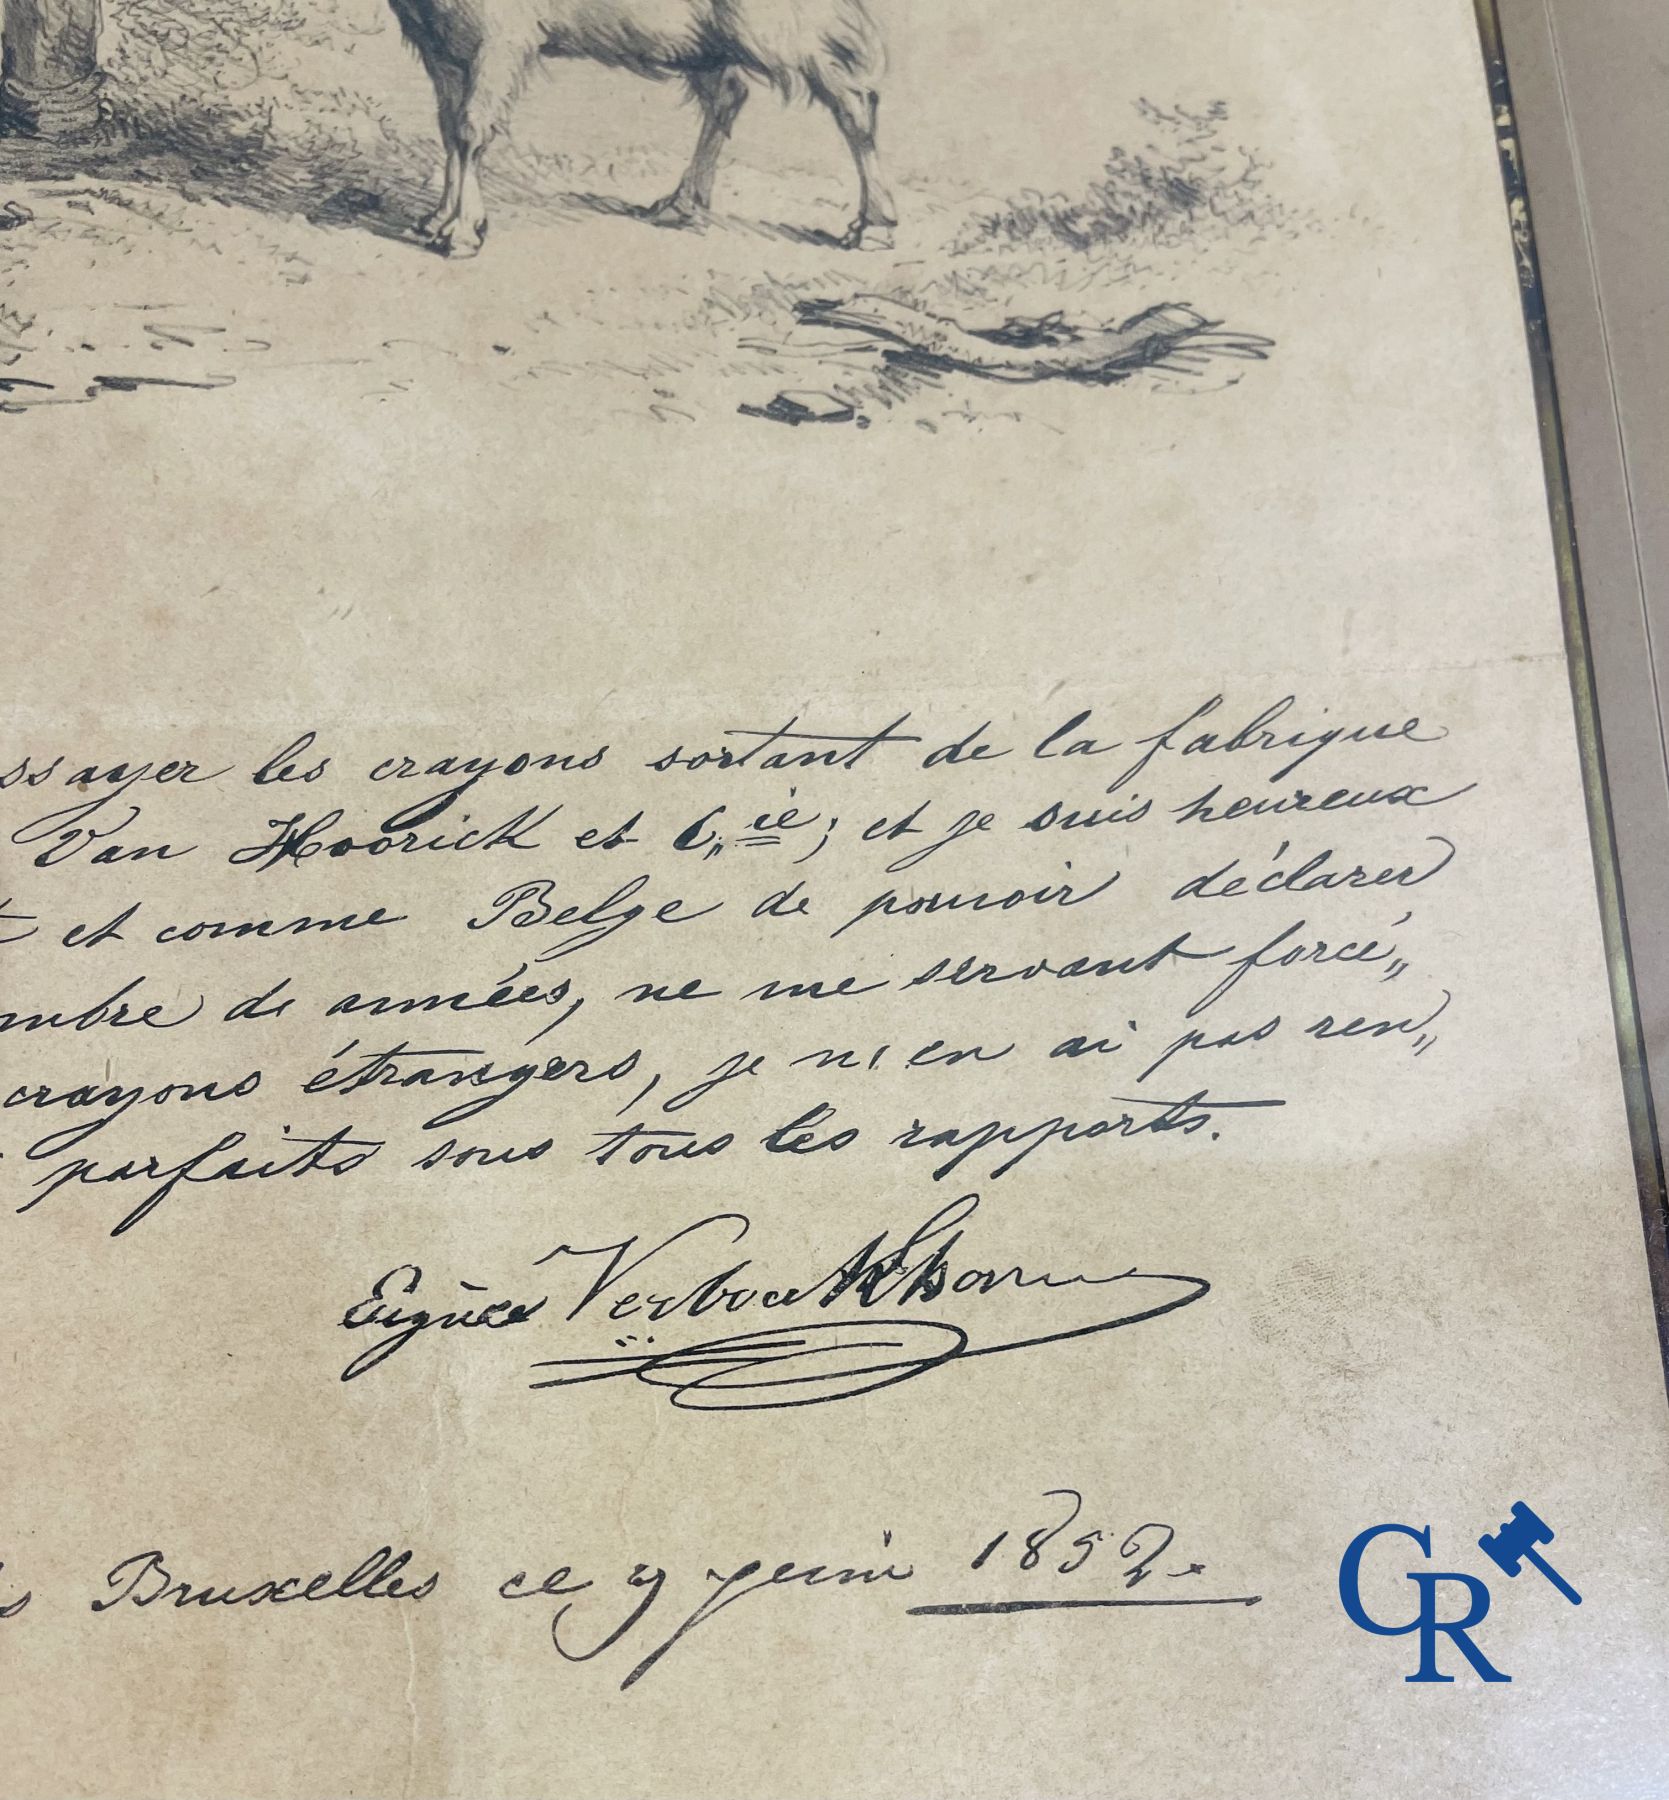 ssayer les crayons sortant de la fabrique
Van Hoorick et C,,ie; et je suis heureux
et comme Belge de pouvoir déclarer
mbre de années, ne me servant forcé,,
crayons étrangers, je n'en ai pas ren,,
parfaits sous tous les rapports.
Eugène Verboeckhoven
Bruxelles ce 9 juin 1852.
GR